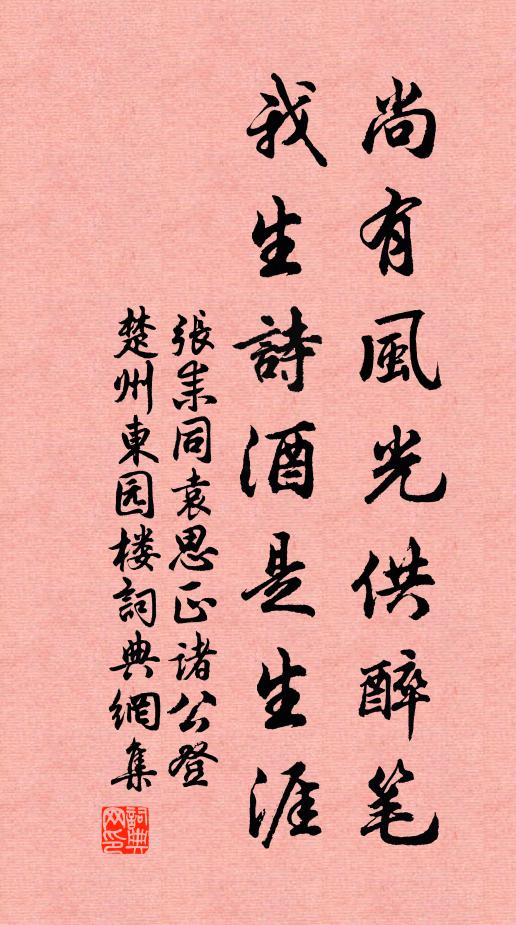 尚有風光供醉笔
我生詩酒是生涯
張耒同袁思正诸公登
楚州東园楼詞典網集
詞典网印